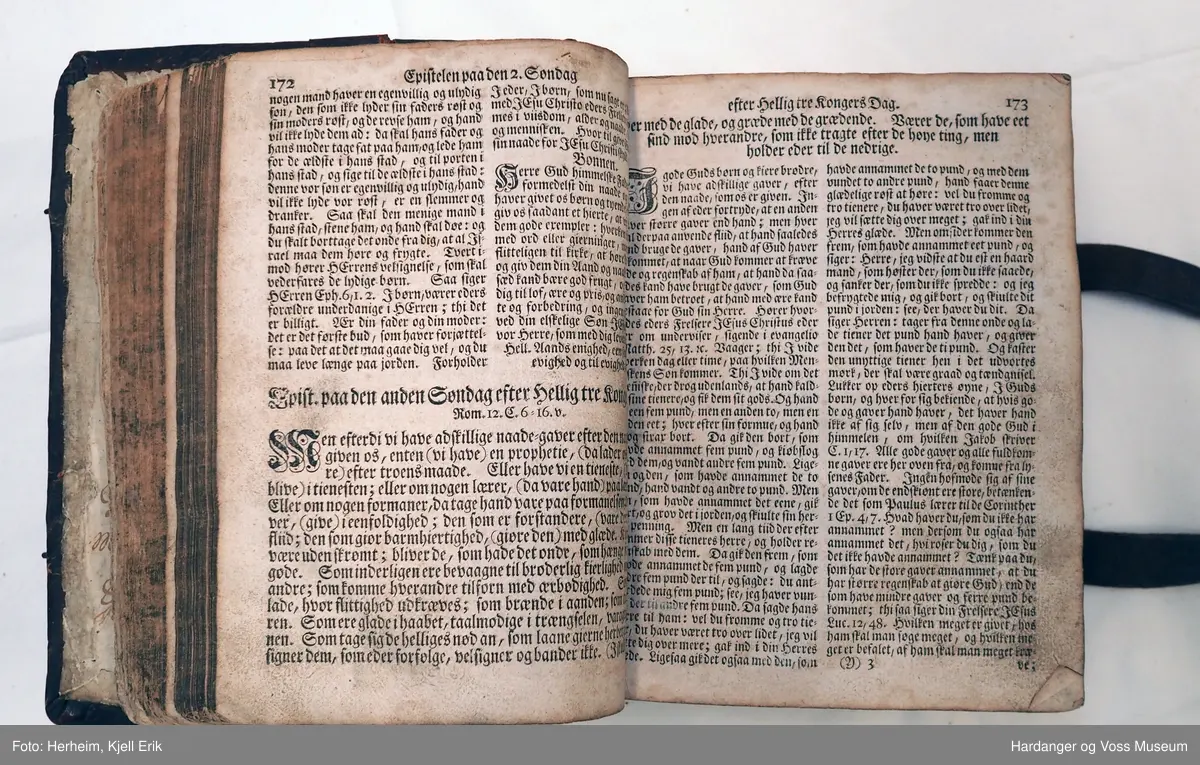 172
Epistelen paa den 2. Søndag
nogen mand haver en egenvillig og ulydig
søn, den som ikke lyder sin faders røst og
sin moders røst, og de revse ham, og hand
vil ikke lyde dem ad: da skal hans fader og
hans moder tage fat paa ham, og lede ham
for de ældste i hans stad, og til porten i
hans stad, og sige til de ældste i hans stad:
denne vor søn er egenvillig og ulydig, hand
vil ikke lyde vor røst, er en slemmer og
dranker. Saa skal den menige mand i
hans stad, stene ham, og hand skal døe: og
du skalt borttage det onde fra dig, at al Js-
rael maa dem høre og frygte. Tvert i-
mod hører HErrens velsignelse, som skal
vederfares de lydige børn. Saa siger
HErren Eph. 6, 1. 2. J børn, værer eders
forældre underdanige i HErren; thi det
er billigt. Ær din fader og din moder:
det er det første bud, som haver forjættel-
se: paa det at det maa gaae dig vel, og du
maa leve længe paa jorden. Forholder
J eder, J børn, som nu sagt
med JEsu Christo eders
mes i viisdom, alder og naade
og mennisken. Hvor til
sin naade for JEsu Christi
Bønnen.
HErre Gud himmelske
formedelst din naade
haver givet os børn og tyende
giv os saadant et hierte, at
dem gode exempler: hverken
med ord eller gierninger,
flitteligen til kirke, at høre
og giv dem din Aand og naade
sæd kand bære god frugt,
dig til lof, ære og pris, og
te og forbedring, og
ved din elskelige Søn
vor Herre, som med dig
Hell. Aands enighed,
evighed og til
Epist. paa den anden Søndag efter Hellig tre
Rom. 12. C. 6-16. v.
Men efterdi vi have adskillige naade-gaver efter den
given os, enten (vi have) en prophetie, (da lader
re) efter troens maade. Eller have vi en tieneste,
blive) i tienesten; eller om nogen lærer, (da vare hand) paa
Eller om nogen formaner, da tage hand vare paa formanelsen
ver, (give) i eenfoldighed; den som er forstandere, (være
fliid; den som giør barmhjertighed, (giøre den) med glæde.
være uden skrømt; bliver de, som hade det onde, som
gode. Som inderligen ere bevægne til broderlig kierlighed
andre; som komme hverandre tilforn med ærbødighed.
lade, hvor flittighed udkræves; som brænde i aanden;
ren. Som ere glade i haabet, taalmodige i trængselen,
nen. Som tage sig de helliges nød an, som laane gierne
signer dem, som eder forfølge, velsigner og bander ikke.
efter Hellig tre Kongers Dag.
173
er med de glade, og græde med de grædende. Værer de, som have eet
sind mod hverandre, som ikke tragte efter de høye ting, men
holder eder til de nedrige.
J gode Guds børn og kiere brødre,
vi have adskillige gaver, efter
den naade, som os er given. In-
gen af eder fortryde, at en anden
ver større gaver end hand; men hver
derpaa anvende fliid, at hand saaledes
nd bruge de gaver, hand af Gud haver
kommet, at naar Gud kommer at kræve
de og regenskab af ham, at hand da saa-
des kand have brugt de gaver, som Gud
ver ham betroet, at hand med ære kand
staae for Gud sin Herre. Hører hvor-
des eders Frelsere JEsus Christus eder
er om underviser, sigende i evangelio
Matth. 25, 13. ꝛc. Vaager; thi J vide
verken dag eller time, paa hvilken Men-
skens Søn kommer. Thi J vide om det
enniske, der drog udenlands, at hand kald-
sine tienere, og fik dem sit gods. Og hand
een fem pund, men en anden to, men en
den eet; hver efter sin formue, og hand
og strax bort. Da gik den bort, som
avde annammet fem pund, og kiøbslog
d dem, og vandt andre fem pund. Lige-
og den, som havde annammet de to
nd, hand vandt og andre to pund. Men
, som havde annammet det eene, gik
rt, og grov det i jorden, og skiulte sin her-
penning. Men en lang tid der efter
mmer disse tieneres herre, og holder re-
skab med dem. Da gik den frem, som
de annammet de fem pund, og lagde
dre fem pund der til, og sagde: du ant-
dede mig fem pund; see, jeg haver vun-
der til andre fem pund. Da sagde hans
re til ham: vel du fromme og tro tie-
, du haver været tro over lidet, jeg vil
te dig over mere; gak ind i din Herres
de. Ligesaa gik det ogsaa med den, som
havde annammet de to pund, og med dem
vundet to andre pund, hand faaer denne
glædelige røst at høre: vel du fromme og
tro tienere, du haver været tro over lidet,
jeg vil sætte dig over meget; gak ind i din
Herres glæde. Men omsider kommer den
frem, som havde annammet eet pund, og
siger: Herre, jeg vidste at du est en haard
mand, som høster der, som du ikke saaede,
og sanker der, som du ikke spredde: og jeg
befrygtede mig, og gik bort, og skiulte dit
pund i jorden: see, der haver du dit. Da
siger Herren: tager fra denne onde og la-
de tiener det pund hand haver, og giver
den det, som haver de ti pund. Og kaster
den unyttige tiener hen i det udvortes
mørk, der skal være graad og tændgnidsel.
Lukker op eders hierters øyne, J Guds
børn, og hver for sig betænke, at hvis go-
de og gaver hand haver, det haver hand
ikke af sig selv, men af den gode Gud i
himmelen, om hvilken Jakob skriver
C. 1, 17. Alle gode gaver og alle fuldkom-
ne gaver ere her oven fra, og komne fra ly-
senes Fader. Ingen hofmode sig af sine
gaver, om de endskiønt ere store, betænken-
de det som Paulus lærer til de Corinther
1 Ep. 4, 7. Hvad haver du, som du ikke har
annammet? men dersom du ogsaa har
annammet det, hvi roser du dig, som du
det ikke havde annammet? Tænk paa du,
som har de store gaver annammet, at du
har større regenskab at giøre Gud, end de
som have mindre gaver og færre pund be-
kommet; thi saa siger din Frelsere JEsus
Luc. 12, 48. Hvilken meget er givet, hos
ham skal man søge meget, og hvilken me-
get er befalet, af ham skal man meget kræ-
(Y) 3
ve;
Foto: Herheim, Kjell Erik
Hardanger og Voss Museum